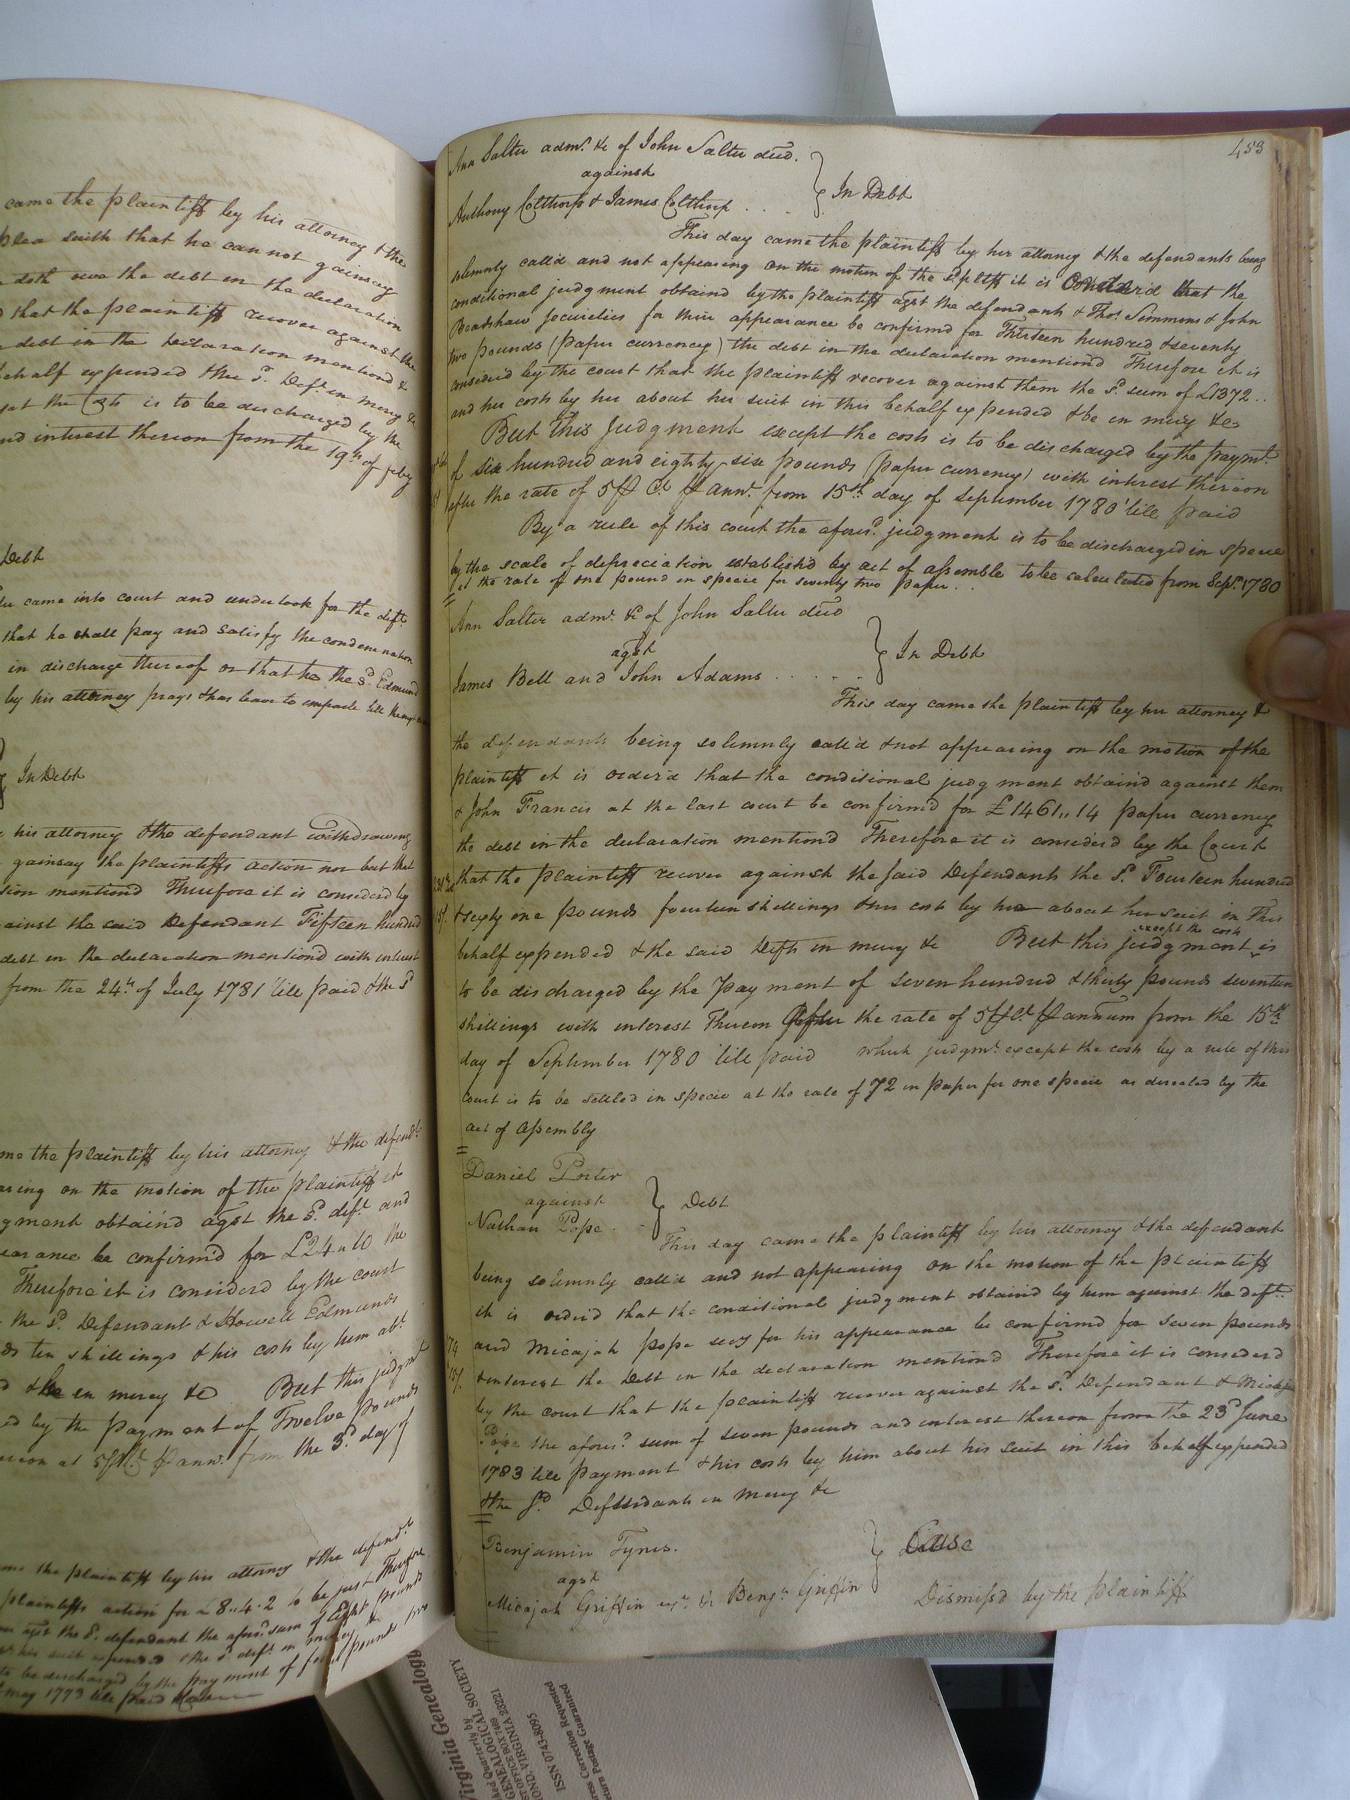 came the plaintiff by his attorney & the
plea saith that he cannot gainsay
doth owe the debt in the declaration
that the plaintiff recover against the
debt in the declaration mentiond &
behalf expended & the sd. Deft. in mercy &c
that the is to be discharged by the
and interest thereon from the 19th of feby
Debt
came into court and undertook for the deft.
that he shall pay and satisfy the condemnation
in discharge thereof or that he the sd. Edmund
by his attorney prays & has leave to imparle till the next
In Debt
his attorney & the defendant withdrawing
gainsay the plaintiffs action nor but that
tion mentiond Therefore it is considerd by
against the said Defendant Fifteen hundred
debt in the declaration mentiond with interest
from the 24th of July 1781 till paid & the sd
me the plaintiff by his attorney & the defendt.
aring on the motion of the plaintiff it
gment obtaind agst the sd. deft. and
earance be confirmd for £24.10 the
Therefore it is considerd by the court
the sd. Defendant & Howell Edmunds
ds ten shillings & his costs by him abt.
& be in mercy &c But this judgmt
ed by the payment of Twelve pounds
reon at 5 pCt. p ann. from the 3d. day of
me the plaintiff by his attorney & the defendt.
plaintiffs action for £8..4.2 to be just Therefore
agst the sd. defendant the aforesd. sum of Eight pounds
his suit expended & the sd. deft. in mercy &c
to be discharged by the payment of four pounds two
may 1773 till paid
453
Ann Salter admx. &c of John Salter decd.
against
Anthony Colthorp & James Colthorp . . . . } In Debt
This day came the plaintiff by her attorney & the defendants being
solemnly calld and not appearing on the motion of the sd pltff it is Considerd that the
conditional judgment obtaind by the plaintiff agst the defendants & Thos. Simmons & John
Bradshaw securities for their appearance be confirmed for Thirteen hundred & seventy
two pounds (paper currency) the debt in the declaration mentiond Therefore it is
considerd by the court that the plaintiff recover against them the sd. sum of £1372..
and her costs by her about her suit in this behalf expended & be in mercy &c.
But this Judgment except the costs is to be discharged by the paymt.
of six hundred and eighty six pounds (paper currency) with interest thereon
after the rate of 5 p Ct. p annm. from 15th. day of September 1780 'till paid
By a rule of this court the aforesd. judgment is to be discharged in specie
by the scale of depreciation establish'd by act of assemble to be calculated from Sept. 1780
at the rate of one pound in specie for seventy two paper . .
Ann Salter admx. &c of John Salter decd
agst
James Bell and John Adams . . . . . . } In Debt
This day came the plaintiff by her attorney &
the defendants being solemnly call'd & not appearing on the motion of the
plaintiff it is order'd that the conditional judgment obtain'd against them
& John Francis at the last court be confirm'd for £1461,,14 paper currency
the debt in the declaration mentiond Therefore it is consider'd by the Court
that the plaintiff recover against the said Defendants the sd. Fourteen hundred
& sixty one pounds fourteen shillings & her costs by her about her suit in this
behalf expended & the said Defts in mercy &c But this judgment except the costs is
to be discharged by the payment of seven hundred & thirty pounds seventeen
shillings with interest Thereon after the rate of 5 p Ct. p annum from the 15th
day of September 1780 'till paid which judgmt. except the costs by a rule of this
Court is to be settled in specie at the rate of 72 in paper for one specie as directed by the
act of Assembly
Daniel Porter
against
Nathan Pope . . } Debt
This day came the plaintiff by his attorney & the defendant
being solemnly calld and not appearing on the motion of the plaintiff
it is orderd that the conditional judgment obtaind by him against the deft.
and Micajah pope secy for his appearance be confirmd for seven pounds
& interest the Debt in the declaration mentiond Therefore it is considerd
by the court that the plaintiff recover against the sd. Defendant & Micajah
Pope the aforesd. sum of seven pounds and interest thereon from the 23d June
1783 till payment & his costs by him about his suit in this behalf expended
& the sd. Deffendants in mercy &c
Benjamin Tynes.
agst
Micajah Griffin exr. &c Benjn. Griffin } Case
Dismiss'd by the plaintiff
Virginia Genealog
Quarterly by
GENEALOGICAL SOCIETY
OFFICE BOX 7469
OND, VIRGINIA 23221
ISSN 0743-8095
ress Correction Requested
turn Postage Guaranteed